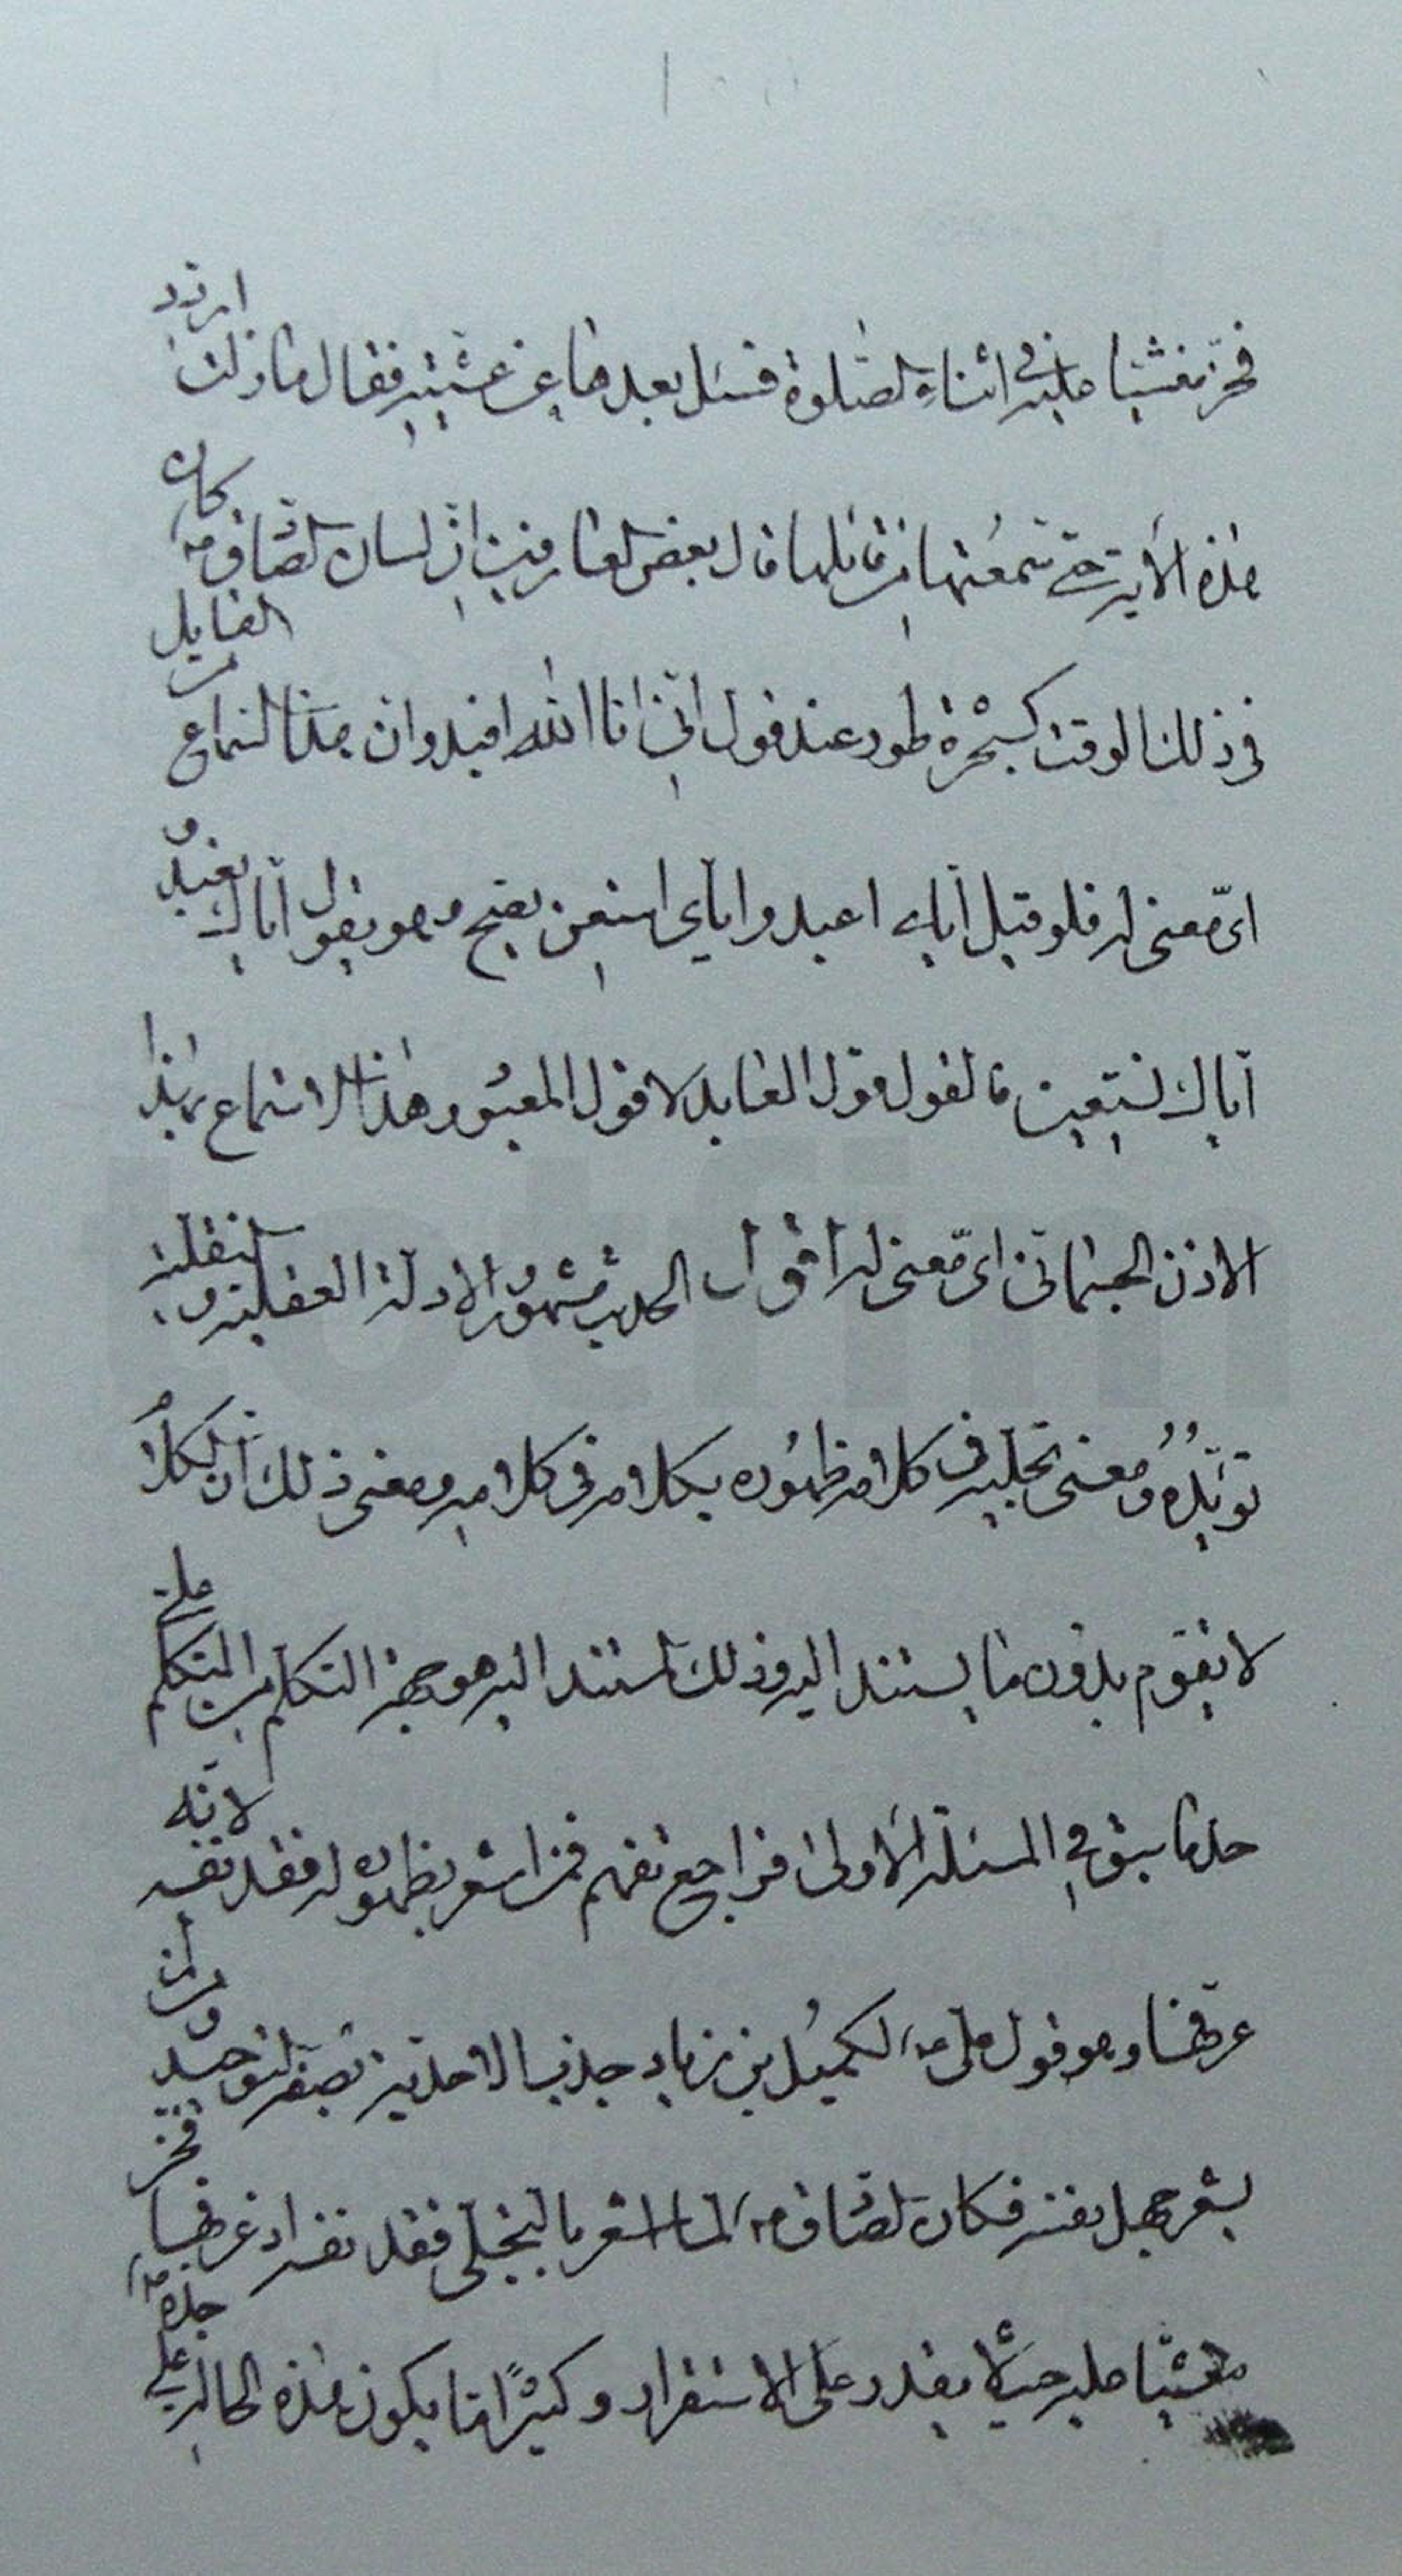 فخرّ مغشيا عليه في اثناء الصّلوة فسئل بعدها عن غشيته فقال ما زلت اردد
هذه الآية حتى سمعتها من قائلها قال بعض العارفين انّ لسان الصّادق ع كان
في ذلك الوقت كشجرة طور عند قول انّي انا الله افيدوا ان هذا السماع من القايل
ايّ معنى له فلو قيل ايّاي اعبد وايّاي استعن يصح وهو يقول ايّاك نعبد و
ايّاك نستعين فالقول قول العابد لا قول المعبود وهذا الاستماع بهذا
الاذن الجسمانيّ ايّ معنى له اقول الحديث مشهور والادلة العقلية والنقلية
تؤيّده ومعنى تجليه في كلامه ظهوره بكلامه في كلامه ومعنى ذلك ان الكلام
لا يقوم بدون ما يستند اليه وذلك المستند اليه هو جهة التكلم من المتكلم على
حد ما سبق في المسئلة الاولى فراجع تفهم فمن اشعر بظهوره له فقد نفسه لانه
عرفها وهو قول علي ع لكميل بن زياد جذب الاحدية لصفة التوحيد ومن لم
يشعر جهل نفسه فكان الصّادق ع لما اشعر بالتجلّي فقد نفسه اذ عرفها فخر
مغشيّا عليه حيث لا يقدر على الاستقرار وكثيرًا ما يكون هذه الحالة على جده ص